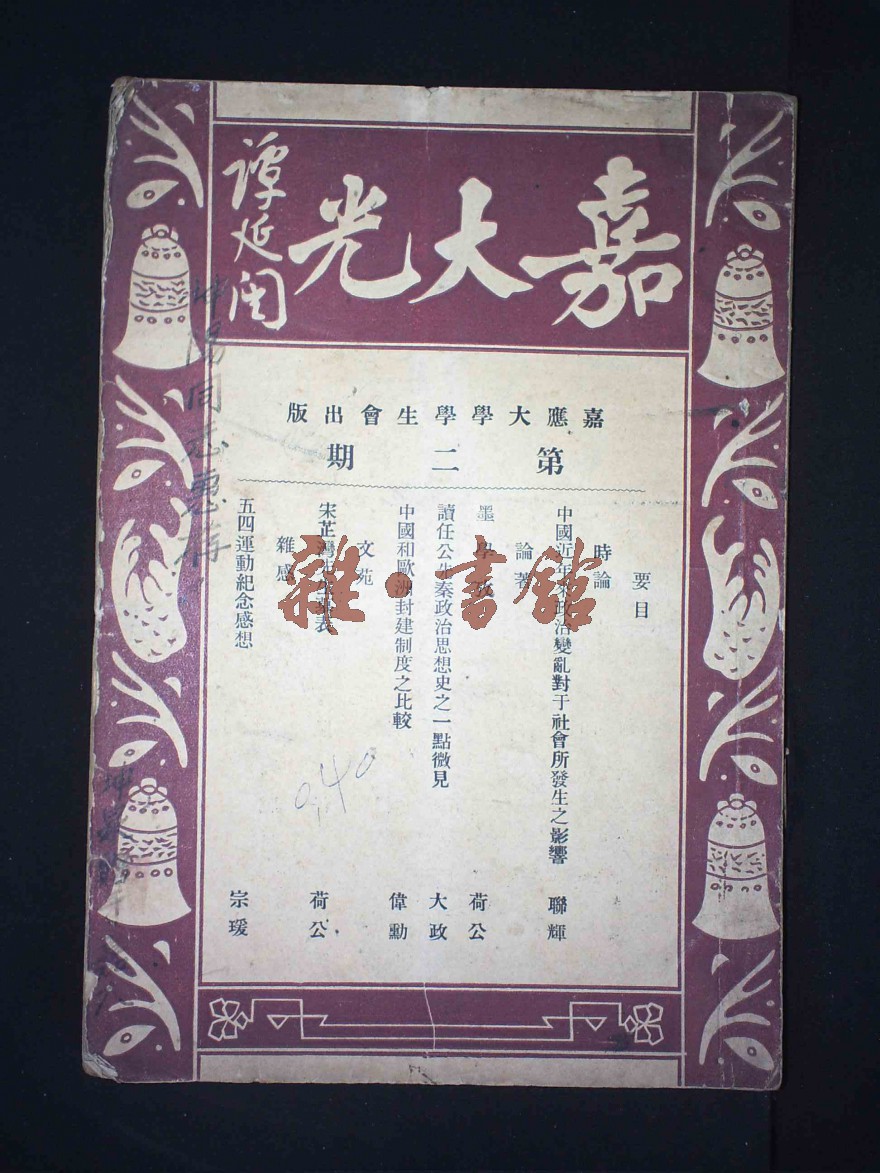 嘉大光
譚延闓
嘉應大學學生會出版
第二期
要目
時論
中國近年來政治變亂對于社會所發生之影響 聯輝
論著
墨 荷公
讀任公先秦政治思想史之一點微見 大政
中國和歐洲封建制度之比較 偉勳
文苑
宋芷灣先生 表 荷公
雜感
五四運動紀念感想 宗瑗
同志惠存
0.40
雜·書館